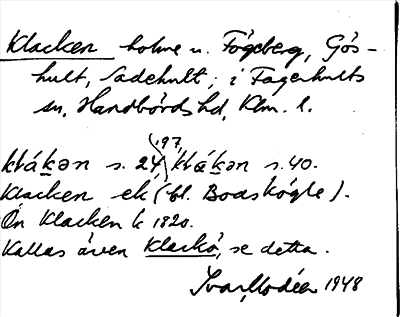 Klacken holme u. Fågeberg, Gös-
hult, Sadehult, i Fagerhults
sn, Handbörds hd, Klm. l.
197,
klák̲ən s. 24, klák̲ən s. 40.
Klacken ek (bl. Bodskögle).
Ön Klacken k 1820.
Kallas även Klackö, se detta.
Ivar Modéer 1948